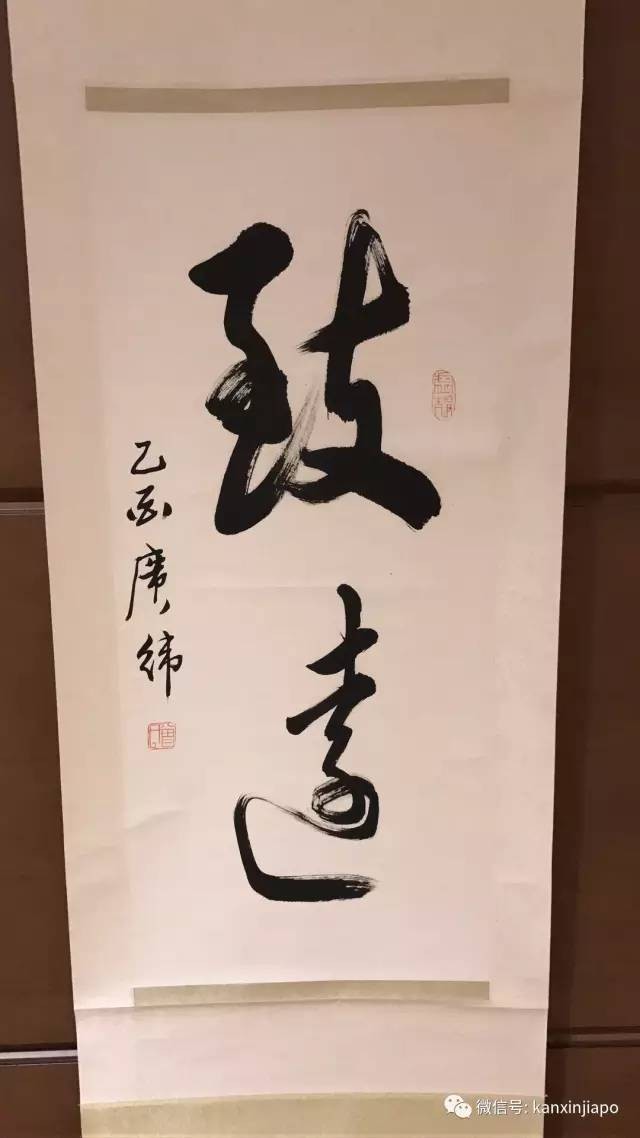 致遠
乙酉廣緯
微信号: kanxinjiapo